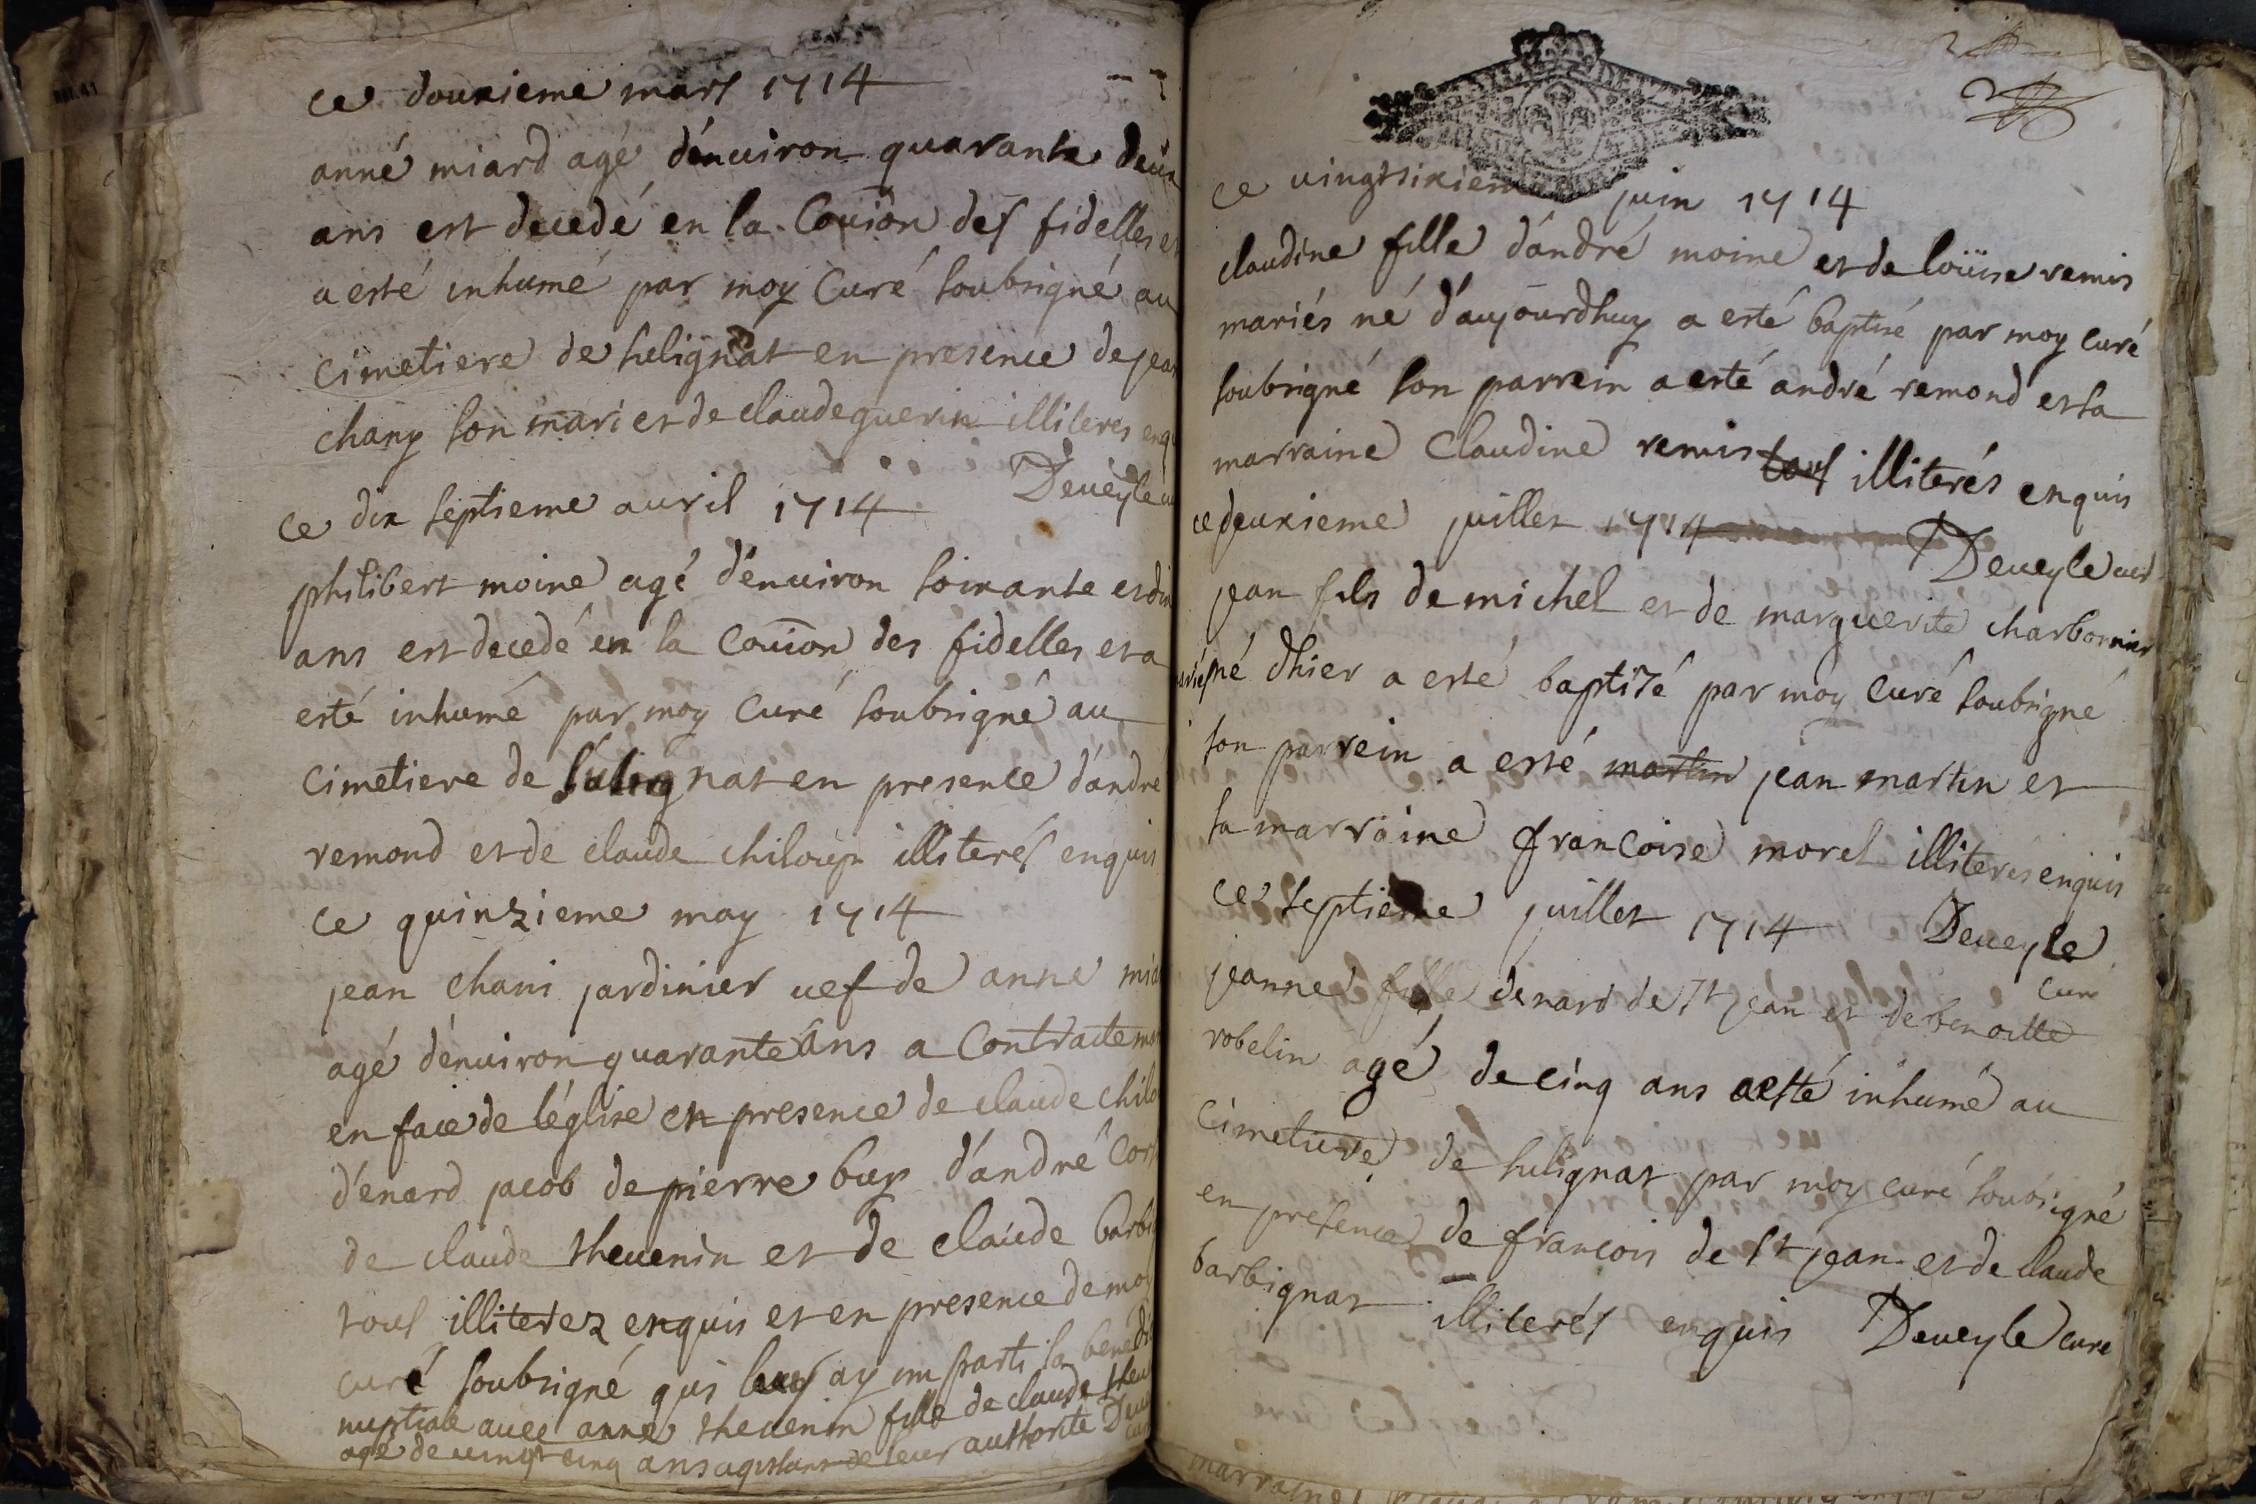 ce douxieme mars 1714
anné miard agé d'enuiron quarante deux
ans est decedé en la Couion des fidelles et
a esté inhumé par moy Curé soubsigné au
cimetiere de sulignat en presence de jean
chany son mari et de claude guerin illiteres enq
Deueyle
ce dix septieme auril 1714
philibert moine agé d'enuiron soixante et dix
ans est decedé en la Couion des fidelles et a
esté inhumé par moy Curé soubsigné au
cimetiere de sulignat en presence d'andré
remond et de claude chiloup illiterés enquis
ce quinzieme may 1714
jean chani jardinier uef de anne mia
agé d'enuiron quarante ans a Contracte
en face de l'église en presence de claude chilo
d'enard jacob de pierre buy d'andré Cor
de claude theuenin et de claude barbi
tous illiterez enquis et en presence de moy
curé soubsigné qui leur ay imparti la benedi
nuptiale auec anne theuenin fille de claude theu
agé de uingt cinq ans agissans de leur authorité
ce uingtsixiem juin 1714
claudine fille d'andré moine et de loüise remis
mariés né d'aujourdhuy a esté baptisé par moy curé
soubsigné son parrein a esté andré remond et sa
marraine Claudine remis tous illiterés enquis
ce deuxieme juillet 1714 Deueyle curé
jean fils de michel et de marguerite charbonnier
mariés né dhier a esté baptisé par moy Curé soubsigné
son parrein a esté martin jean martin et
sa marraine francoise morel illiterés enquis
ce septieme juillet 1714 Deueyle
curé
jeanne fille denard de st jean et de benoitte
robelin agé de cinq ans a esté inhumé au
cimetiere de sulignat par moy curé soubsigné
en presence de francois de st jean et de claude
barbignat illiterés enquis Deueyle curé
marraine